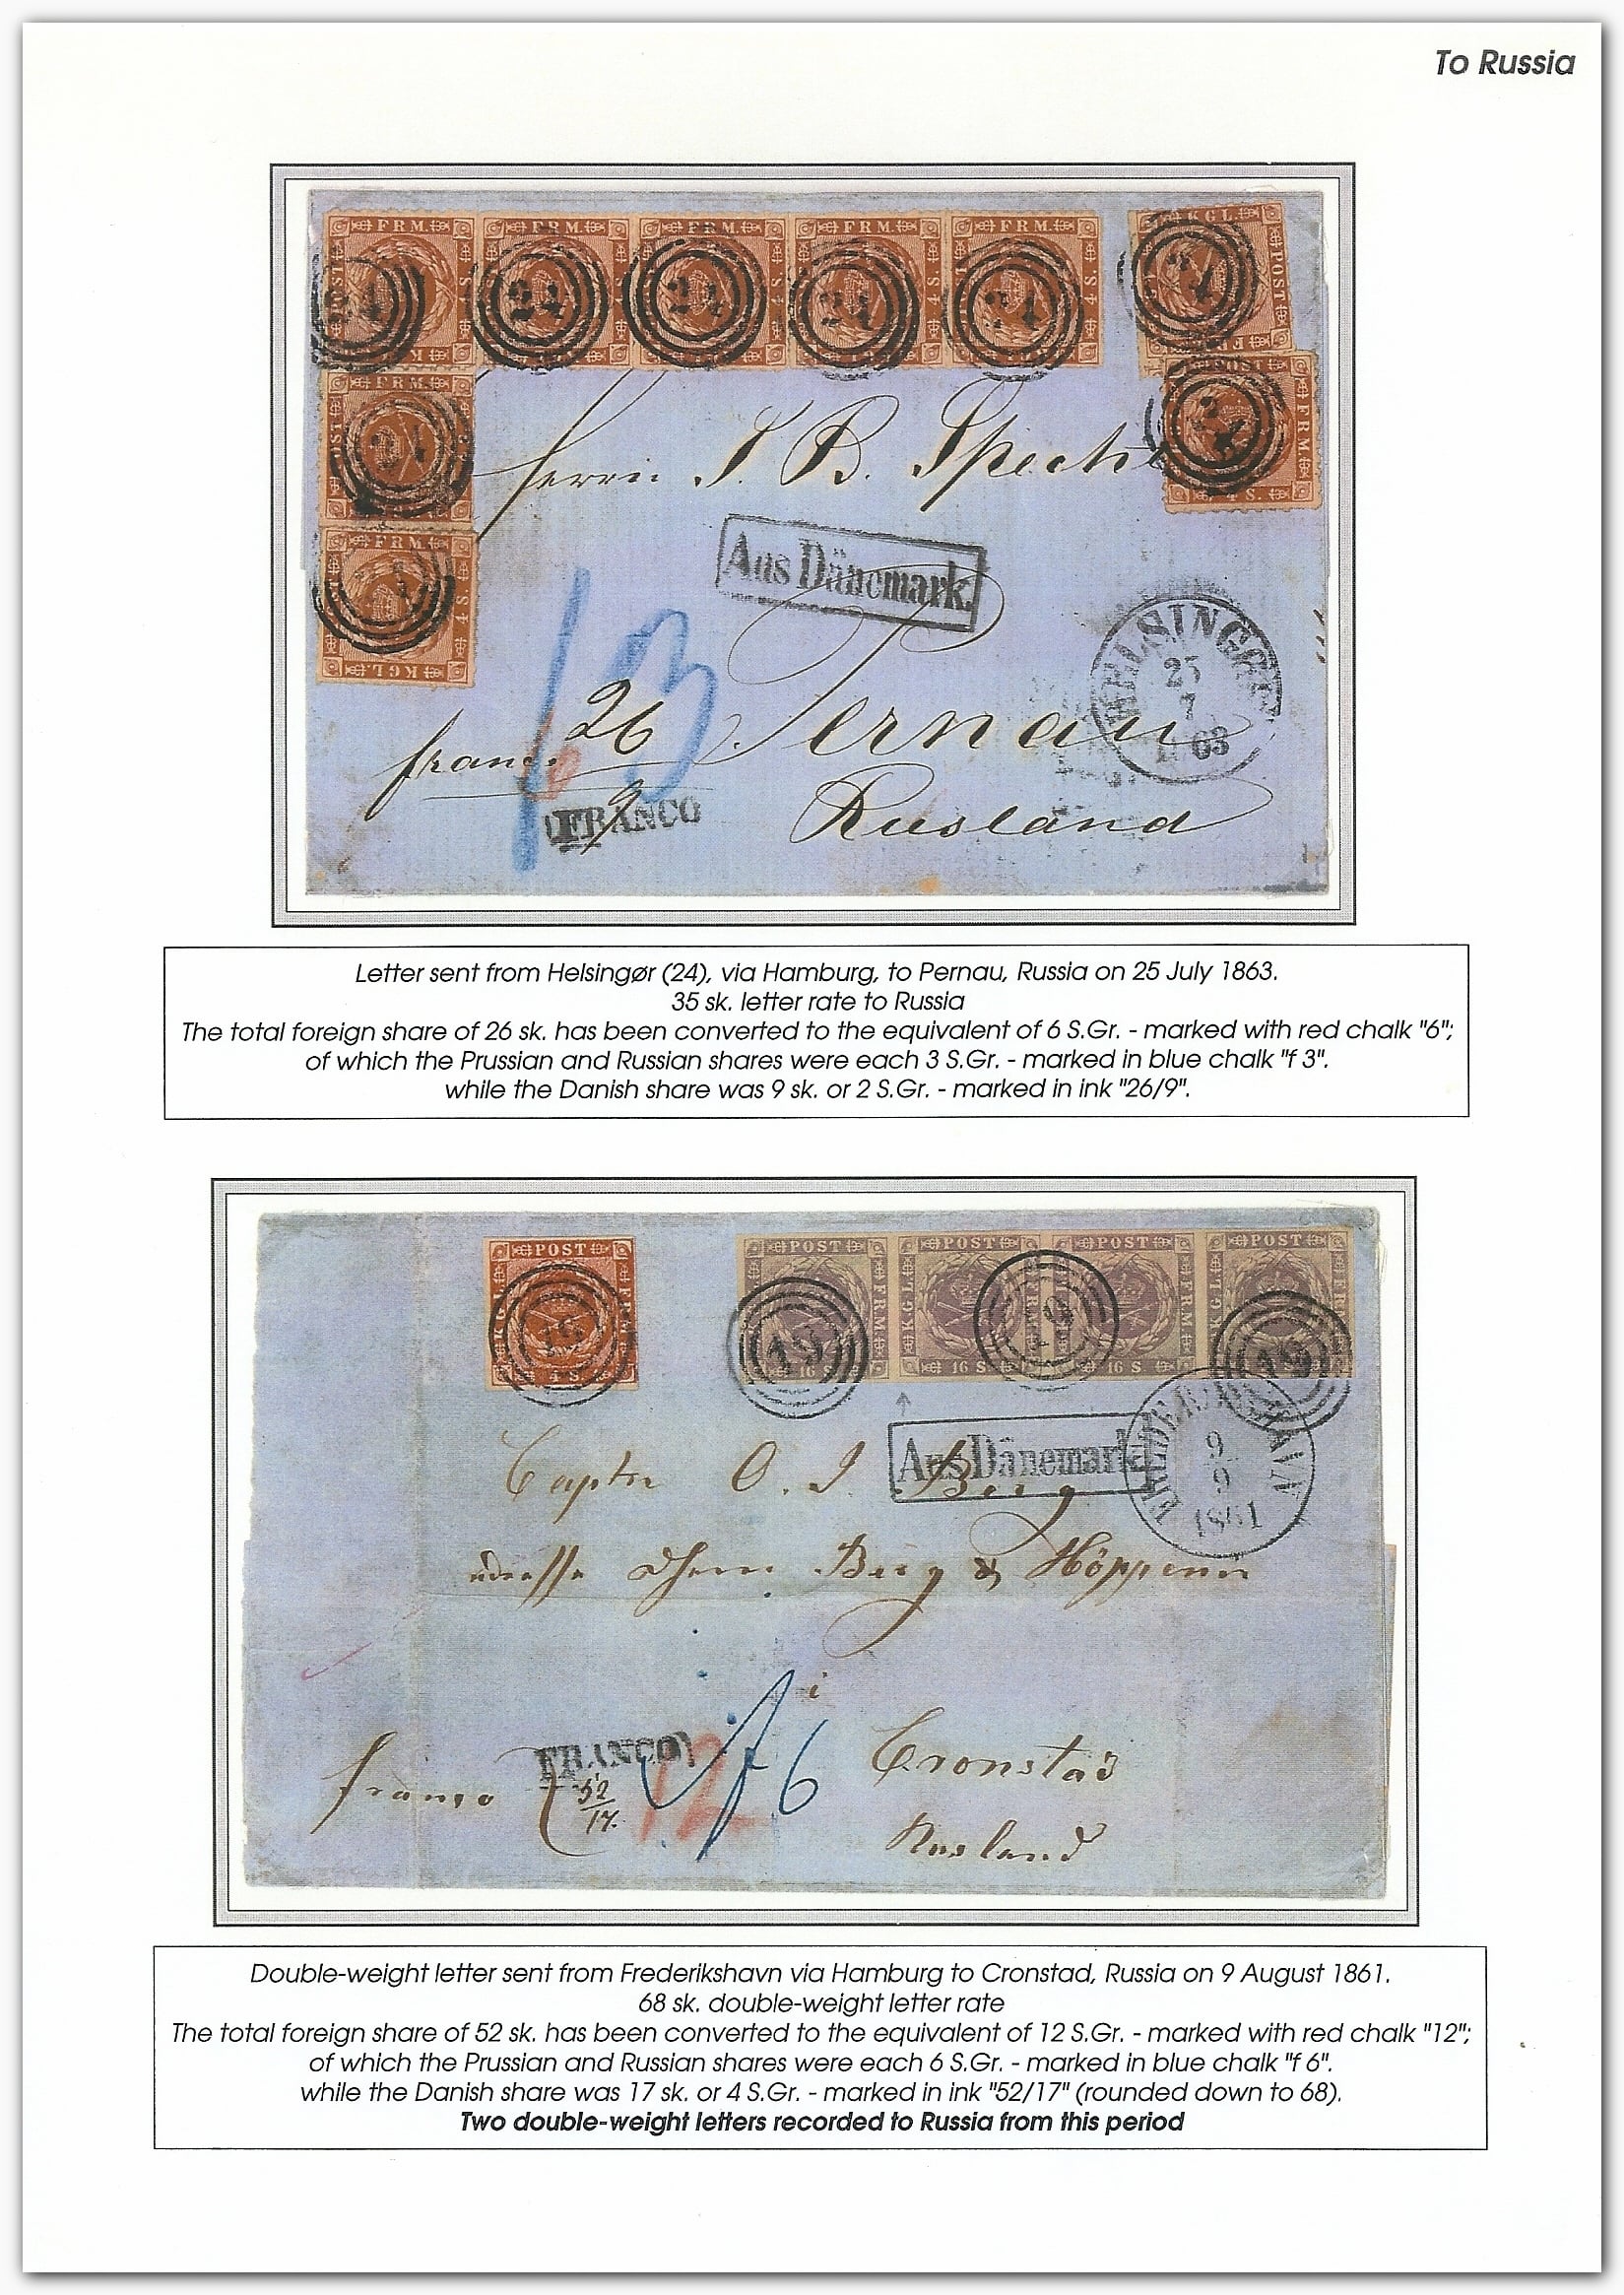 To Russia
FRM. FRM. FRM. FRM. FRM. KGL.
4 S. 4 S. 4 S. 4 S. 4 S. POST
24 24 24 24 24 24
FRM. POST FRM.
24 24
FRM. 4 S. KGL.
Herrn J. B. Specht
Aus Dänemark.
HELSINGØR
25
7
63
f 3
6
franco 26
9
Pernau
FRANCO
Rusland
Letter sent from Helsingør (24), via Hamburg, to Pernau, Russia on 25 July 1863.
35 sk. letter rate to Russia
The total foreign share of 26 sk. has been converted to the equivalent of 6 S.Gr. - marked with red chalk "6";
of which the Prussian and Russian shares were each 3 S.Gr. - marked in blue chalk "f 3".
while the Danish share was 9 sk. or 2 S.Gr. - marked in ink "26/9".
POST POST POST POST POST
KGL FRM KGL FRM KGL FRM KGL FRM
19 19 19 19
4 S. 16 S. 16 S. 16 S.
Aus Dänemark
FREDERIKSHAVN
9
9
1861
O. J. Berg
adresse Berg & Höppener
i
Cronstad
FRANCO
franco 52
17.
12
f 6
Rusland
Double-weight letter sent from Frederikshavn via Hamburg to Cronstad, Russia on 9 August 1861.
68 sk. double-weight letter rate
The total foreign share of 52 sk. has been converted to the equivalent of 12 S.Gr. - marked with red chalk "12";
of which the Prussian and Russian shares were each 6 S.Gr. - marked in blue chalk "f 6".
while the Danish share was 17 sk. or 4 S.Gr. - marked in ink "52/17" (rounded down to 68).
Two double-weight letters recorded to Russia from this period